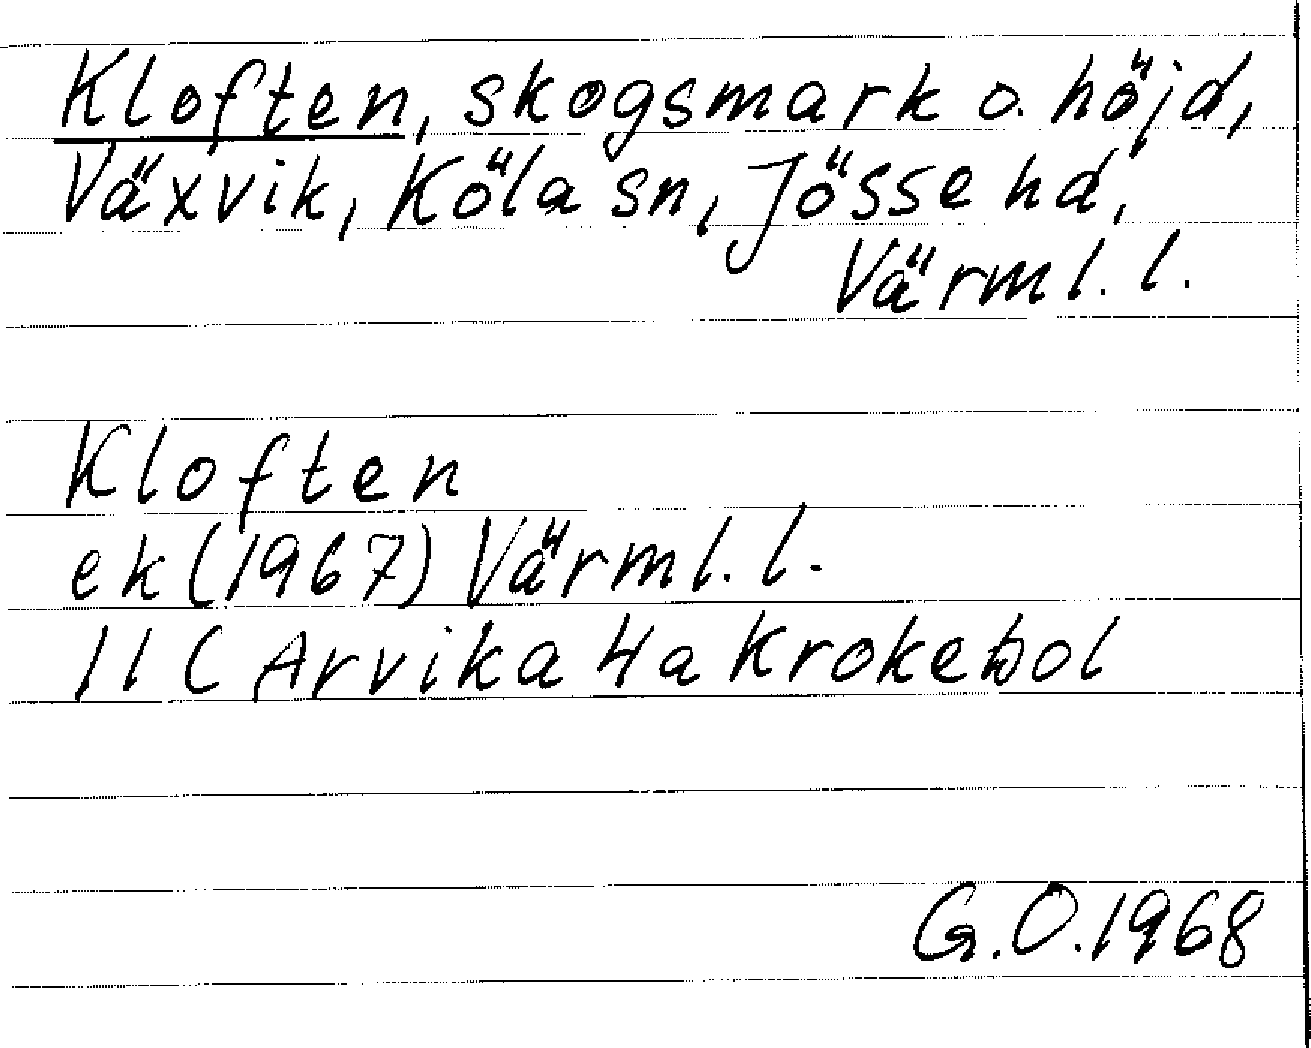 Kloften, skogsmark o. höjd,
Växvik, Köla sn, Jösse hd,
Värml. l.
Kloften
ek (1967) Värml. l.
11 C Arvika 4a Krokebol
G.O. 1968